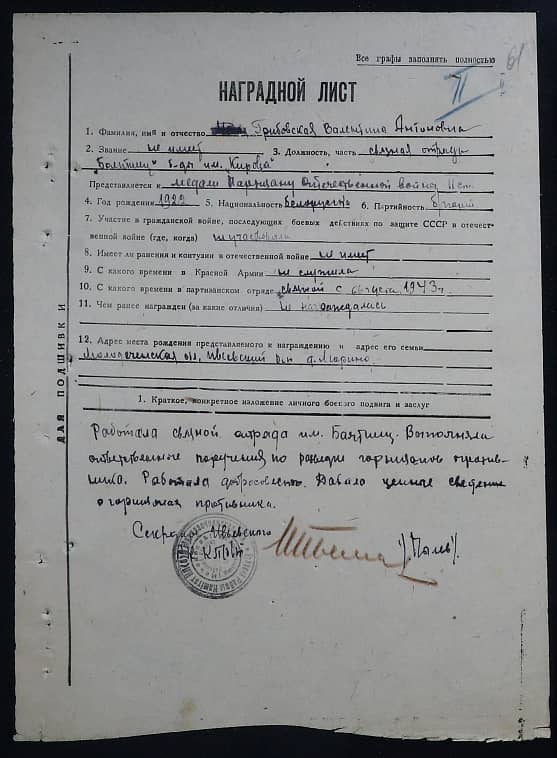 Все графы заполнять полностью
61
II
НАГРАДНОЙ ЛИСТ
1. Фамилия, имя и отчество Грибовская Валентина Антоновна
2. Звание не имеет 3. Должность, часть связная отряда
"Балтиец" б-ды им. Кирова
Представляется к медали Партизану Отечественной войны II ст.
4. Год рождения 1922 5. Национальность белоруска 6. Партийность б/парт
7. Участие в гражданской войне, последующих боевых действиях по защите СССР и отечест-
венной войне (где, когда) не участвовала
8. Имеет ли ранения и контузии в отечественной войне не имеет
9. С какого времени в Красной Армии не служила
10. С какого времени в партизанском отряде связной с августа 1943 г.
11. Чем ранее награжден (за какие отличия) не награждалась
12. Адрес места рождения представляемого к награждению и адрес его семьи
Молодеченская обл, Ивьевский р-н д.
ДЛЯ ПОДШИВКИ
1. Краткое, конкретное изложение личного боевого подвига и заслуг
Работала связной отряда им. Балтиец. Выполняла
ответственное поручения по разведке гарнизонов против-
ника. Работала добросовестно. Давала ценные сведения
о гарнизонах противника.
Секретарь Ивьевского
РК КП(б)Б